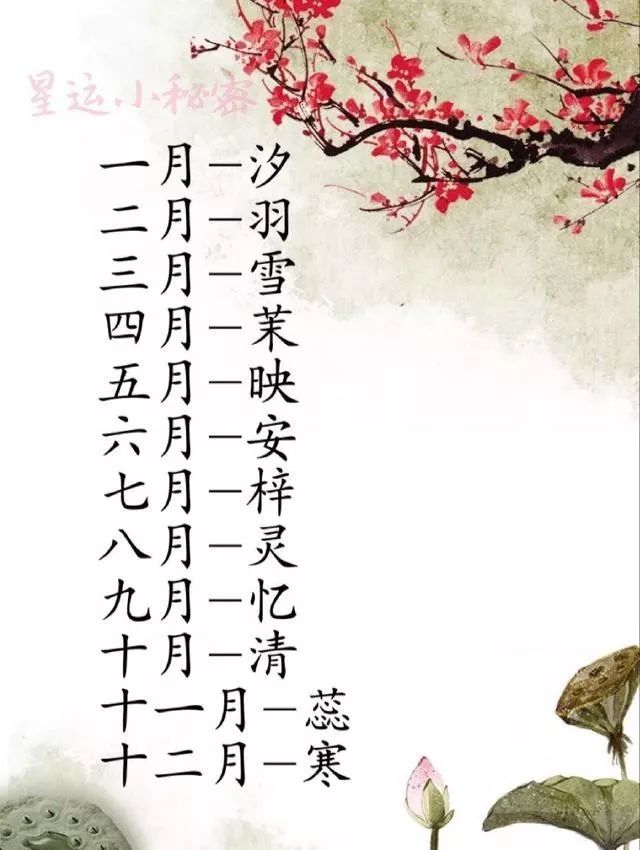 星运小秘密
一月－汐
二月－羽
三月－雪
四月－茉
五月－映
六月－安
七月－梓
八月－灵
九月－忆
十月－清
十一月－蕊
十二月－寒